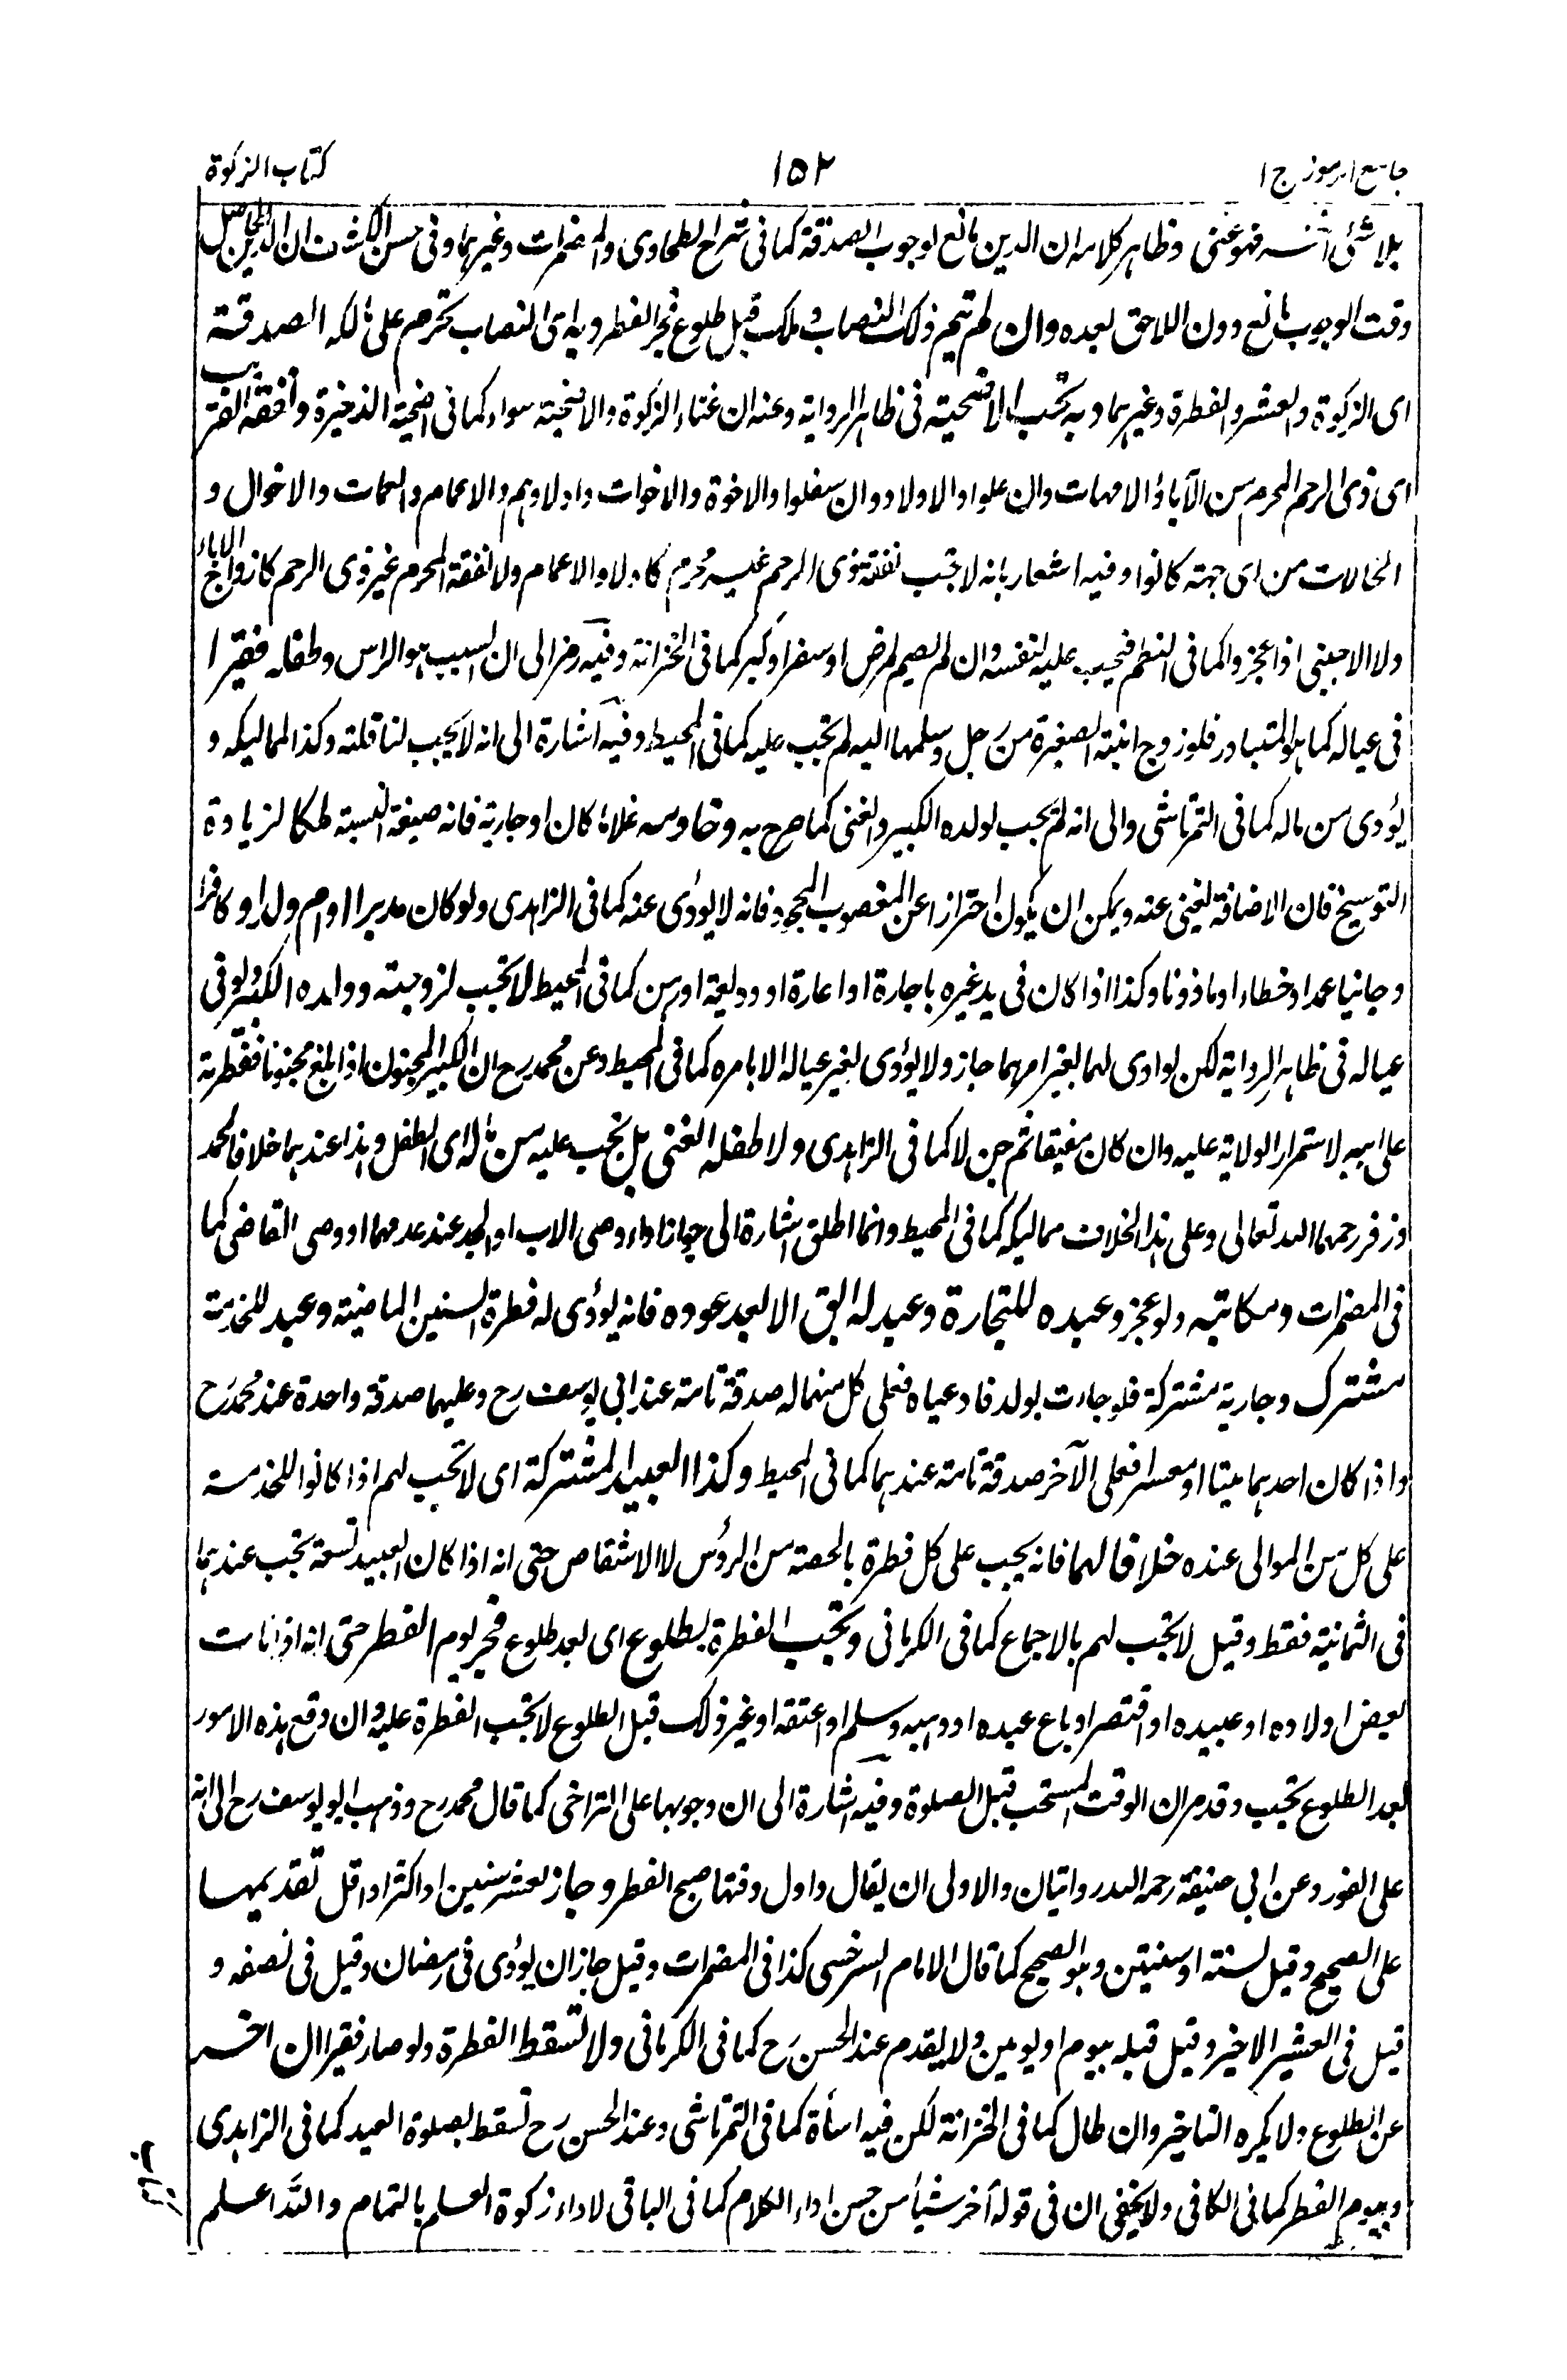 جامع الرموز ج ١
١٥٢
كتاب الزكوة
بلا شئ فهو غنى وظاهر كلامه ان الدين مانع لوجوب الصدقة كما فى شرح الطحاوى والمضمرات وغيرهما وفى الكشف ان الدين الحاصل
وقت الوجوب مانع دون اللاحق بعده وان لم تنم ذلك النصاب وملك قبل طلوع فجر الفطر وبه اى النصاب تحرم على مالكه الصدقة
اى الزكوة والعشر والفطرة وغيرهما وبه تجب الاضحية فى ظاهر الرواية وعنه ان غناء الزكوة والاضحية سواء كما فى اضحية الذخيرة ونفقة القريب
اى ذى الرحم المحرم من الآباء والامهات وان علوا والاولاد وان سفلوا والاخوة والاخوات واولادهم والاعمام والعمات والاخوال و
الخالات من اى جهة كانوا وفيه اشعار بانه لا تجب نفقة ذوى الرحم غير محرم كاولاد الاعمام ولا نفقة المحرم غير ذوى الرحم كازواج الاباء
ولا الاجنبى اذا عجزوا كما فى النظم فيجب عليه لنفسه وان لم يصم لمرض او سفر او كبر كما فى الخزانة وفيه رمز الى ان السبب هو الراس وطفله فقيرا
فى عياله كما هو المتبادر فلو زوج ابنته الصغيرة من رجل وسلمها اليه لم تجب عليه كما فى المحيط وفيه اشارة الى انه لا يجب لنافلته وكذا لمماليكه و
يؤدى من ماله كما فى التمرتاشى والى انه لم يجب لولده الكبير والغنى كما صرح به وخادمه غلاما كان او جارية فانه صيغة النسبة ملكا لزيادة
التوسيخ فان الاضافة تغنى عنه ويمكن ان يكون احترازا عن المغصوب المجحود فانه لا يؤدى عنه كما فى الزاهدى ولو كان مدبرا او ام ولد او كافرا
وجانيا عمدا او خطاء او ماذونا وكذا اذا كان فى يد غيره باجارة او اعارة او وديعة او رهن كما فى المحيط لا تجب لزوجته وولده الكبير ولو فى
عياله فى ظاهر الرواية لكن لو ادى لهما بغير امرهما جاز ولا يؤدى لغير عياله الا بامره كما فى المحيط وعن محمد رح ان الكبير المجنون اذا بلغ مجنونا ففطرته
على ابيه لاستمرار الولاية عليه وان كان مفيقا ثم جن لا كما فى الزاهدى ولا طفله الغنى بل تجب عليه من ماله اى الطفل وهذا عندهما خلافا لمحمد
وزفر رحمهما الله تعالى وعلى هذا الخلاف مماليكه كما فى المحيط وانما اطلق اشارة الى جواز اداء وصى الاب او الجد عند عدمهما او وصى القاضى كما
فى المضمرات ومكاتبه ولو عجز وعبده للتجارة وعبد له ابق الا بعد عوده فانه يؤدى له فطرة السنين الماضية وعبد للخدمة
مشترك وجارية مشتركة فلو جاءت بولد فادعياه فعلى كل منهما له صدقة تامة عند ابى يوسف رح وعليهما صدقة واحدة عند محمد رح
واذا كان احدهما ميتا او معسرا فعلى الآخر صدقة تامة عندهما كما فى المحيط وكذا العبيد المشتركة اى لا تجب لهم اذا كانوا للخدمة
على كل من الموالى عنده خلافا لهما فانه يجب على كل فطرة بالحصة من الرؤس لا الاشقاص حتى انه اذا كان العبيد تسعة يجب عندهما
فى الثمانية فقط وقيل لا تجب لهم بالاجماع كما فى الكرمانى وتجب الفطرة بطلوع اى بعد طلوع فجر يوم الفطر حتى انه اذا مات
بعض اولاده او عبيده او افتقر او باع عبده او وهبه وسلم او اعتقه او غير ذلك قبل الطلوع لا تجب الفطرة عليه وان وقع هذه الامور
بعد الطلوع تجب وقد مر ان الوقت المستحب قبل الصلوة وفيه اشارة الى ان وجوبها على التراخى كما قال محمد رح وذهب ابو يوسف رح الى انه
على الفور وعن ابى حنيفة رحمه الله روايتان والاولى ان يقال واول وقتها صبح الفطر وجاز لعشر سنين او اكثر او اقل تقديمها
على الصحيح وقيل لسنة او سنتين وهو الصحيح كما قال الامام السرخسى كذا فى المضمرات وقيل جاز ان يؤدى فى رمضان وقيل فى نصفه و
قيل فى العشر الاخير وقيل قبله بيوم او يومين ولا يقدم عند الحسن رح كما فى الكرمانى ولا تسقط الفطرة ولو صار فقيرا ان اخر
عن الطلوع ولا يكره التاخير وان طال كما فى الخزانة لكن فيه اساءة كما فى التمرتاشى وعند الحسن رح تسقط بصلوة العيد كما فى الزاهدى
وبيوم الفطر كما فى الكافى ولا يخفى ان فى قوله آخر شيأ من حسن اداء الكلام كما فى الباقى لاداء زكوة العلم بالتمام والله اعلم